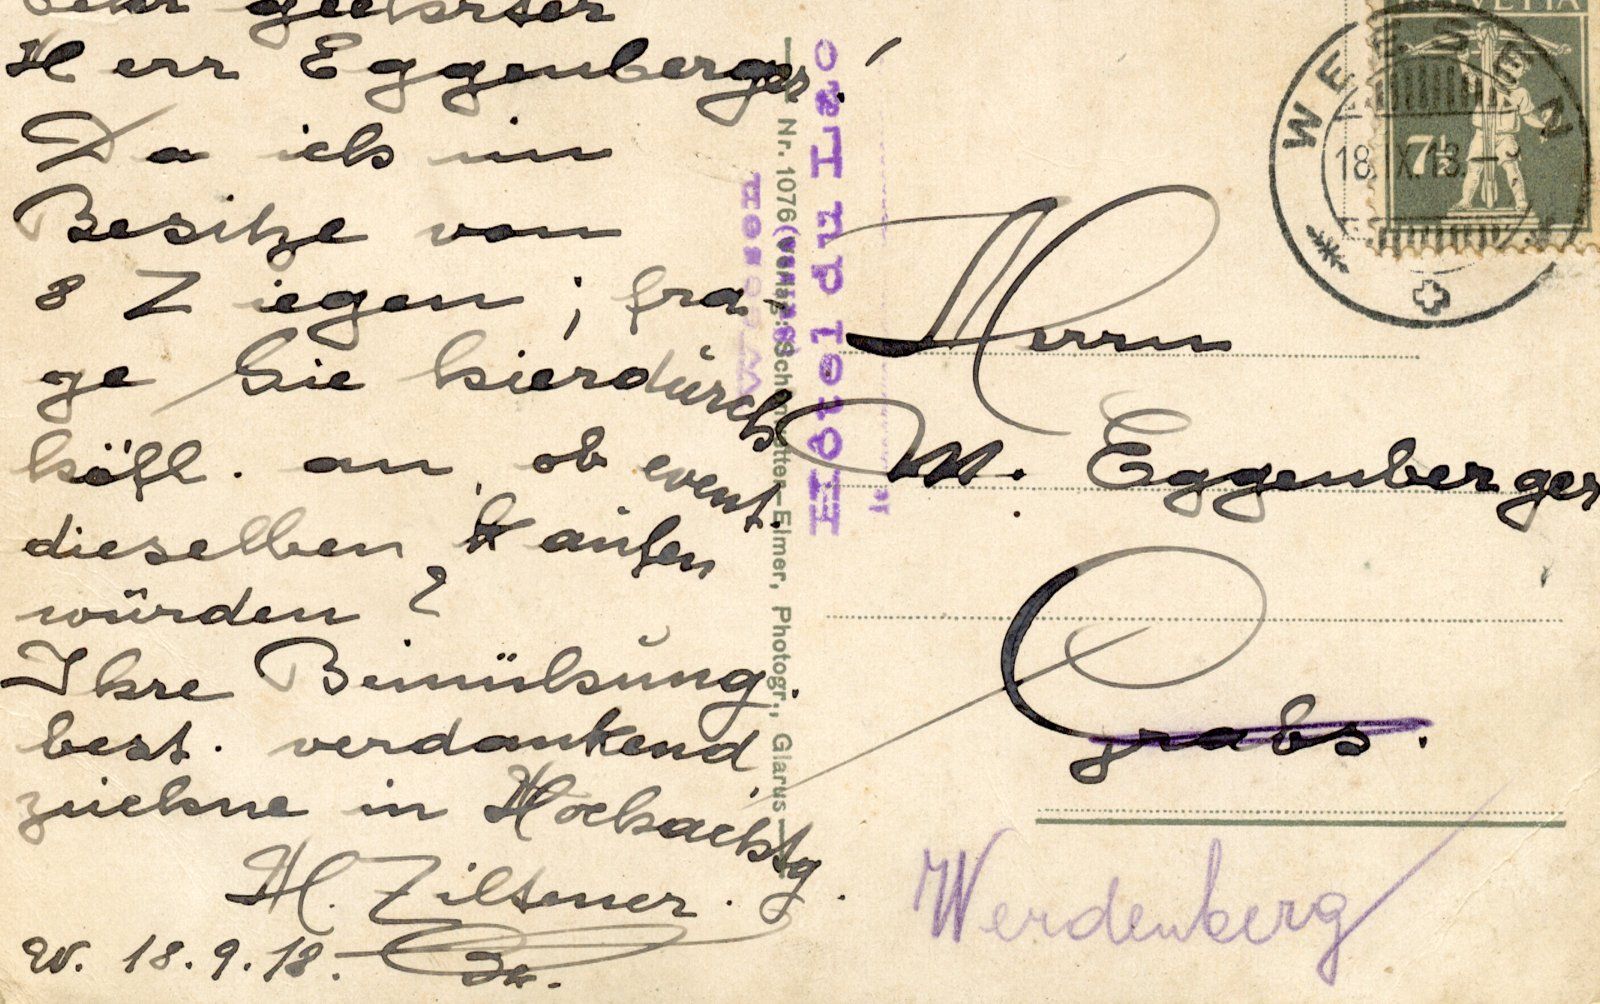 Sehr geehrter
Herr Eggenberger!
Da ich im
Besitze von
8 Ziegen; fra-
ge Sie hierdurch
höfl. an, ob event.
dieselben kaufen
würden?
Ihre Bemühung.
best. verdankend
zeichne in Hochachtg.
H. Ziltener.
W. 18.9.18.
Nr. 1076 Verlag: Schönwetter-Elmer, Photogr., Glarus
Hôtel du Lac
Weesen
HELVETIA
7½
WEESEN
18.IX.18.
Herrn
M. Eggenberger
Grabs.
Werdenberg